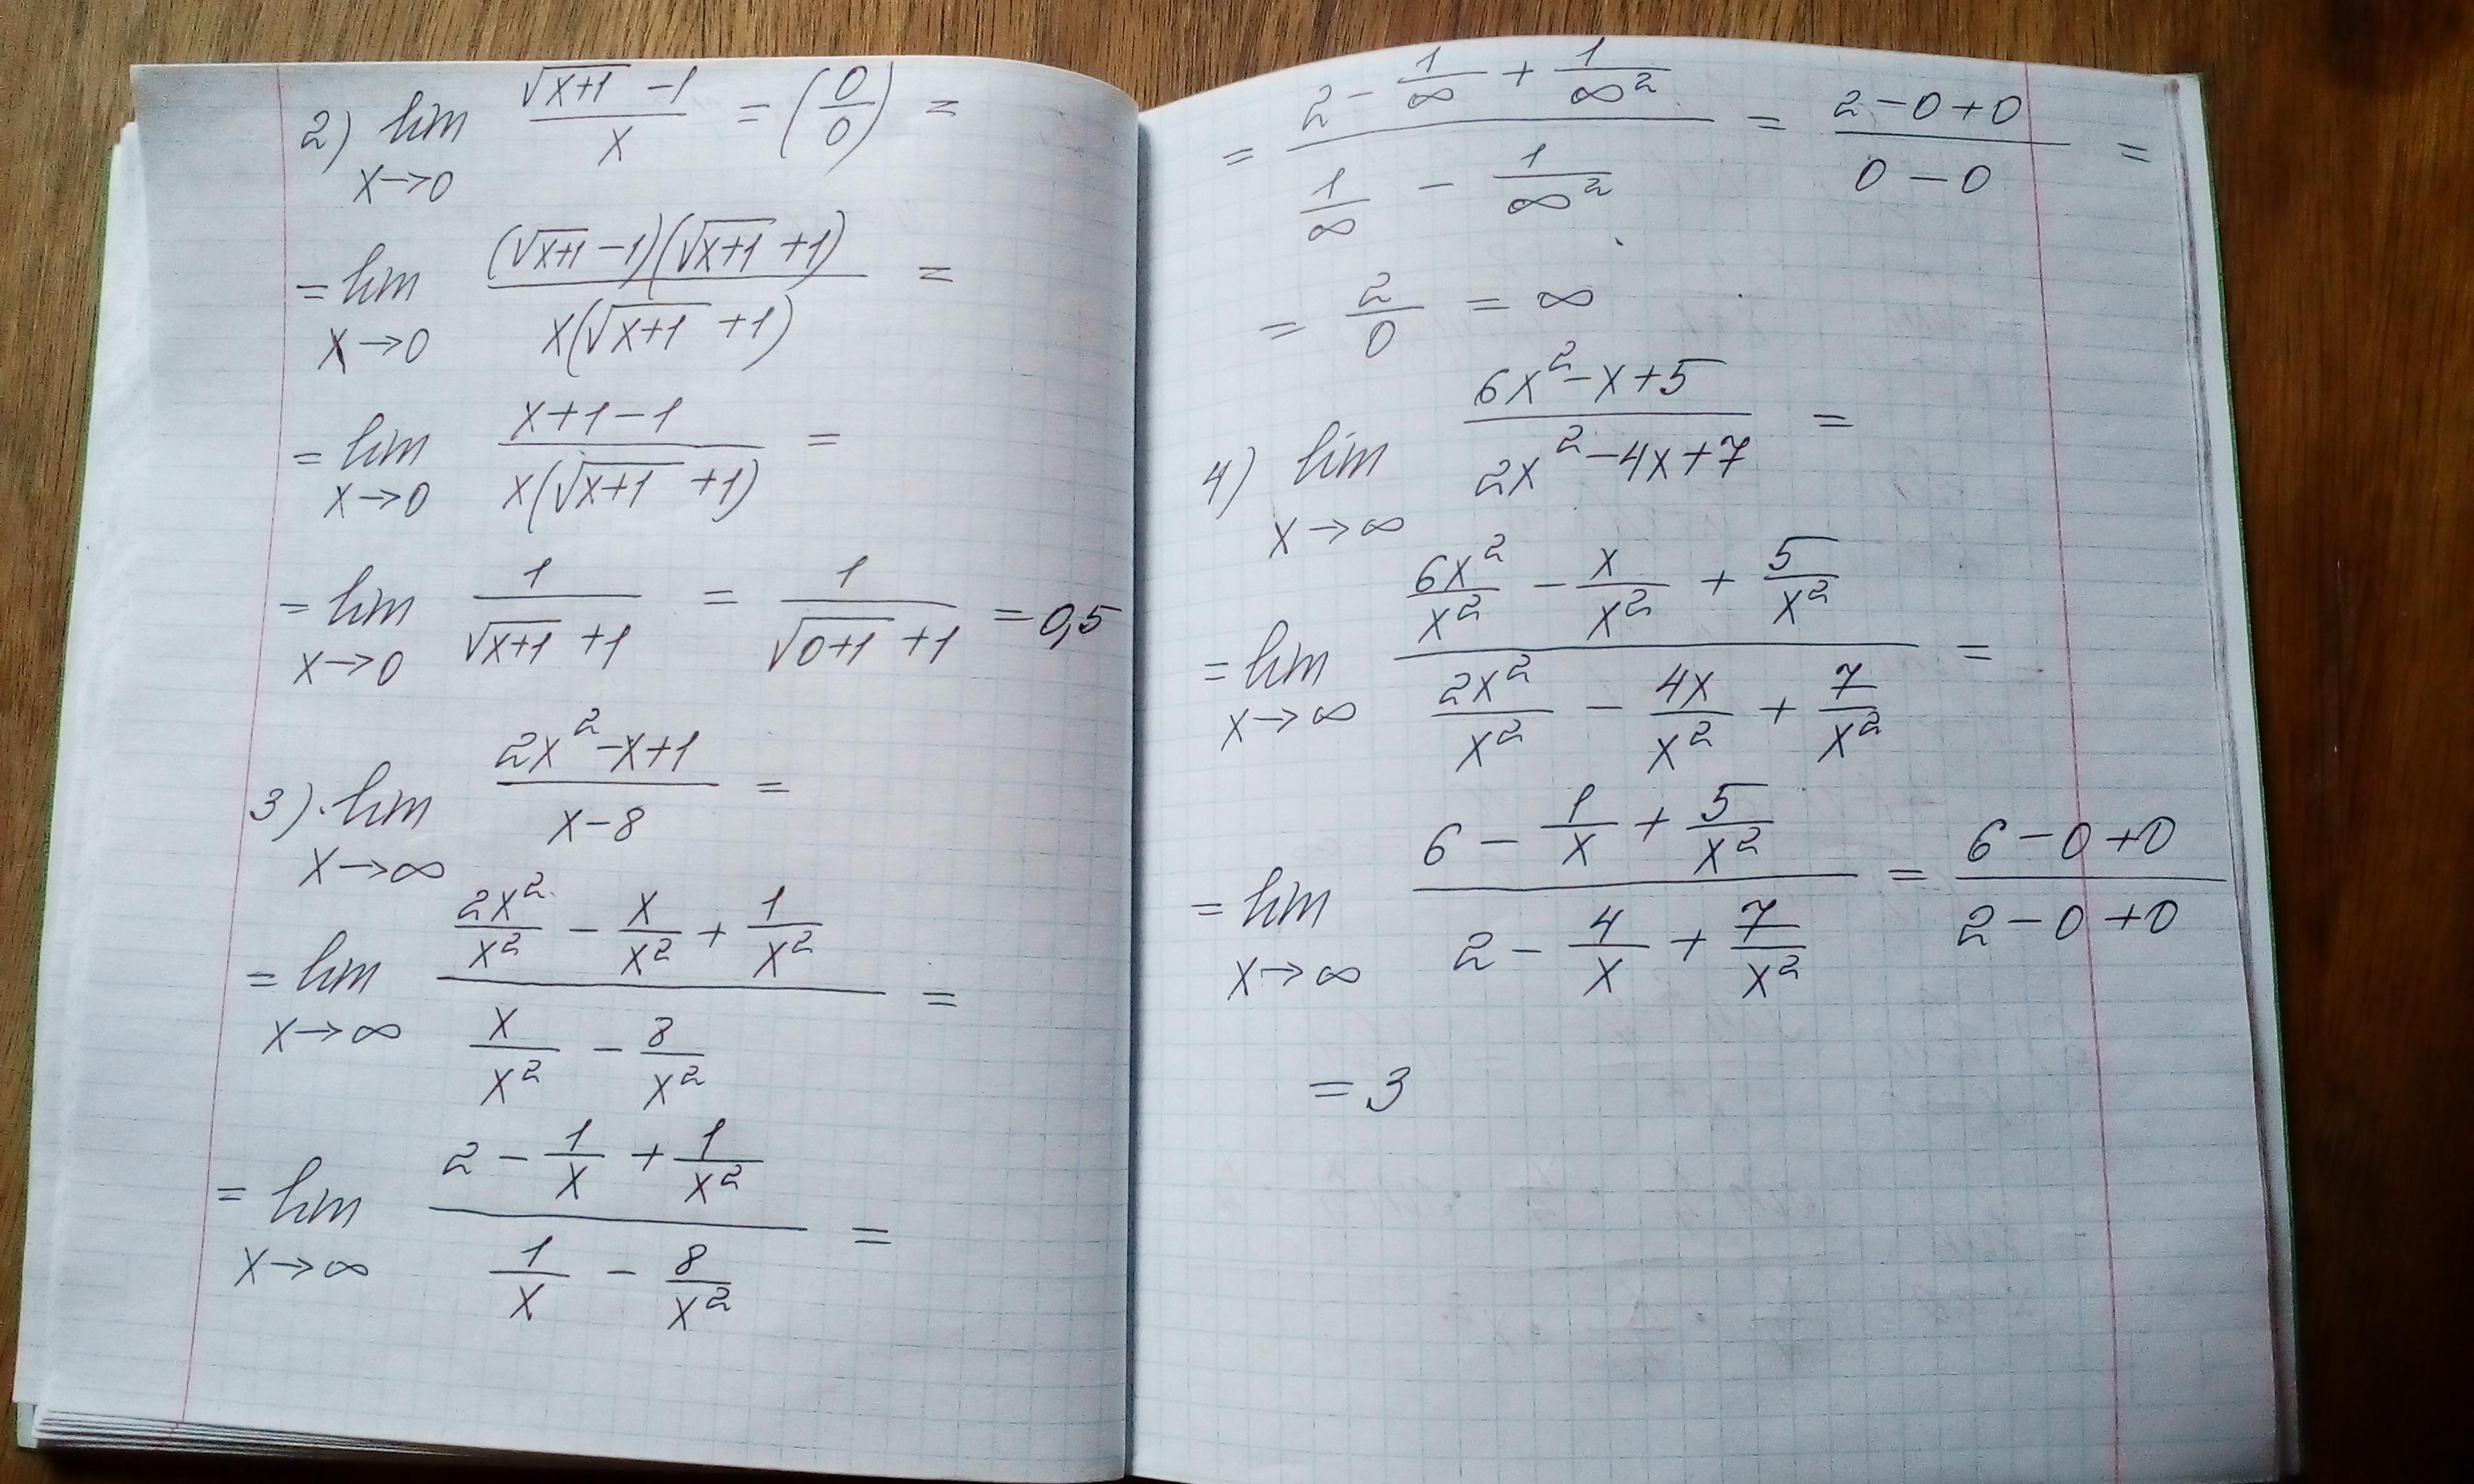 2) lim_{x→0} (√(x+1) − 1)/x = (0/0) =
= lim_{x→0} ((√(x+1) − 1)(√(x+1) + 1))/(x(√(x+1) + 1)) =
= lim_{x→0} (x+1−1)/(x(√(x+1) + 1)) =
= lim_{x→0} 1/(√(x+1) + 1) = 1/(√(0+1) + 1) = 0,5
3) lim_{x→∞} (2x² − x + 1)/(x − 8) =
= lim_{x→∞} (2x²/x² − x/x² + 1/x²)/(x/x² − 8/x²) =
= lim_{x→∞} (2 − 1/x + 1/x²)/(1/x − 8/x²) =
= (2 − 1/∞ + 1/∞²)/(1/∞ − 1/∞²) = (2 − 0 + 0)/(0 − 0) =
= 2/0 = ∞
4) lim_{x→∞} (6x² − x + 5)/(2x² − 4x + 7) =
= lim_{x→∞} (6x²/x² − x/x² + 5/x²)/(2x²/x² − 4x/x² + 7/x²) =
= lim_{x→∞} (6 − 1/x + 5/x²)/(2 − 4/x + 7/x²) = (6 − 0 + 0)/(2 − 0 + 0)
= 3